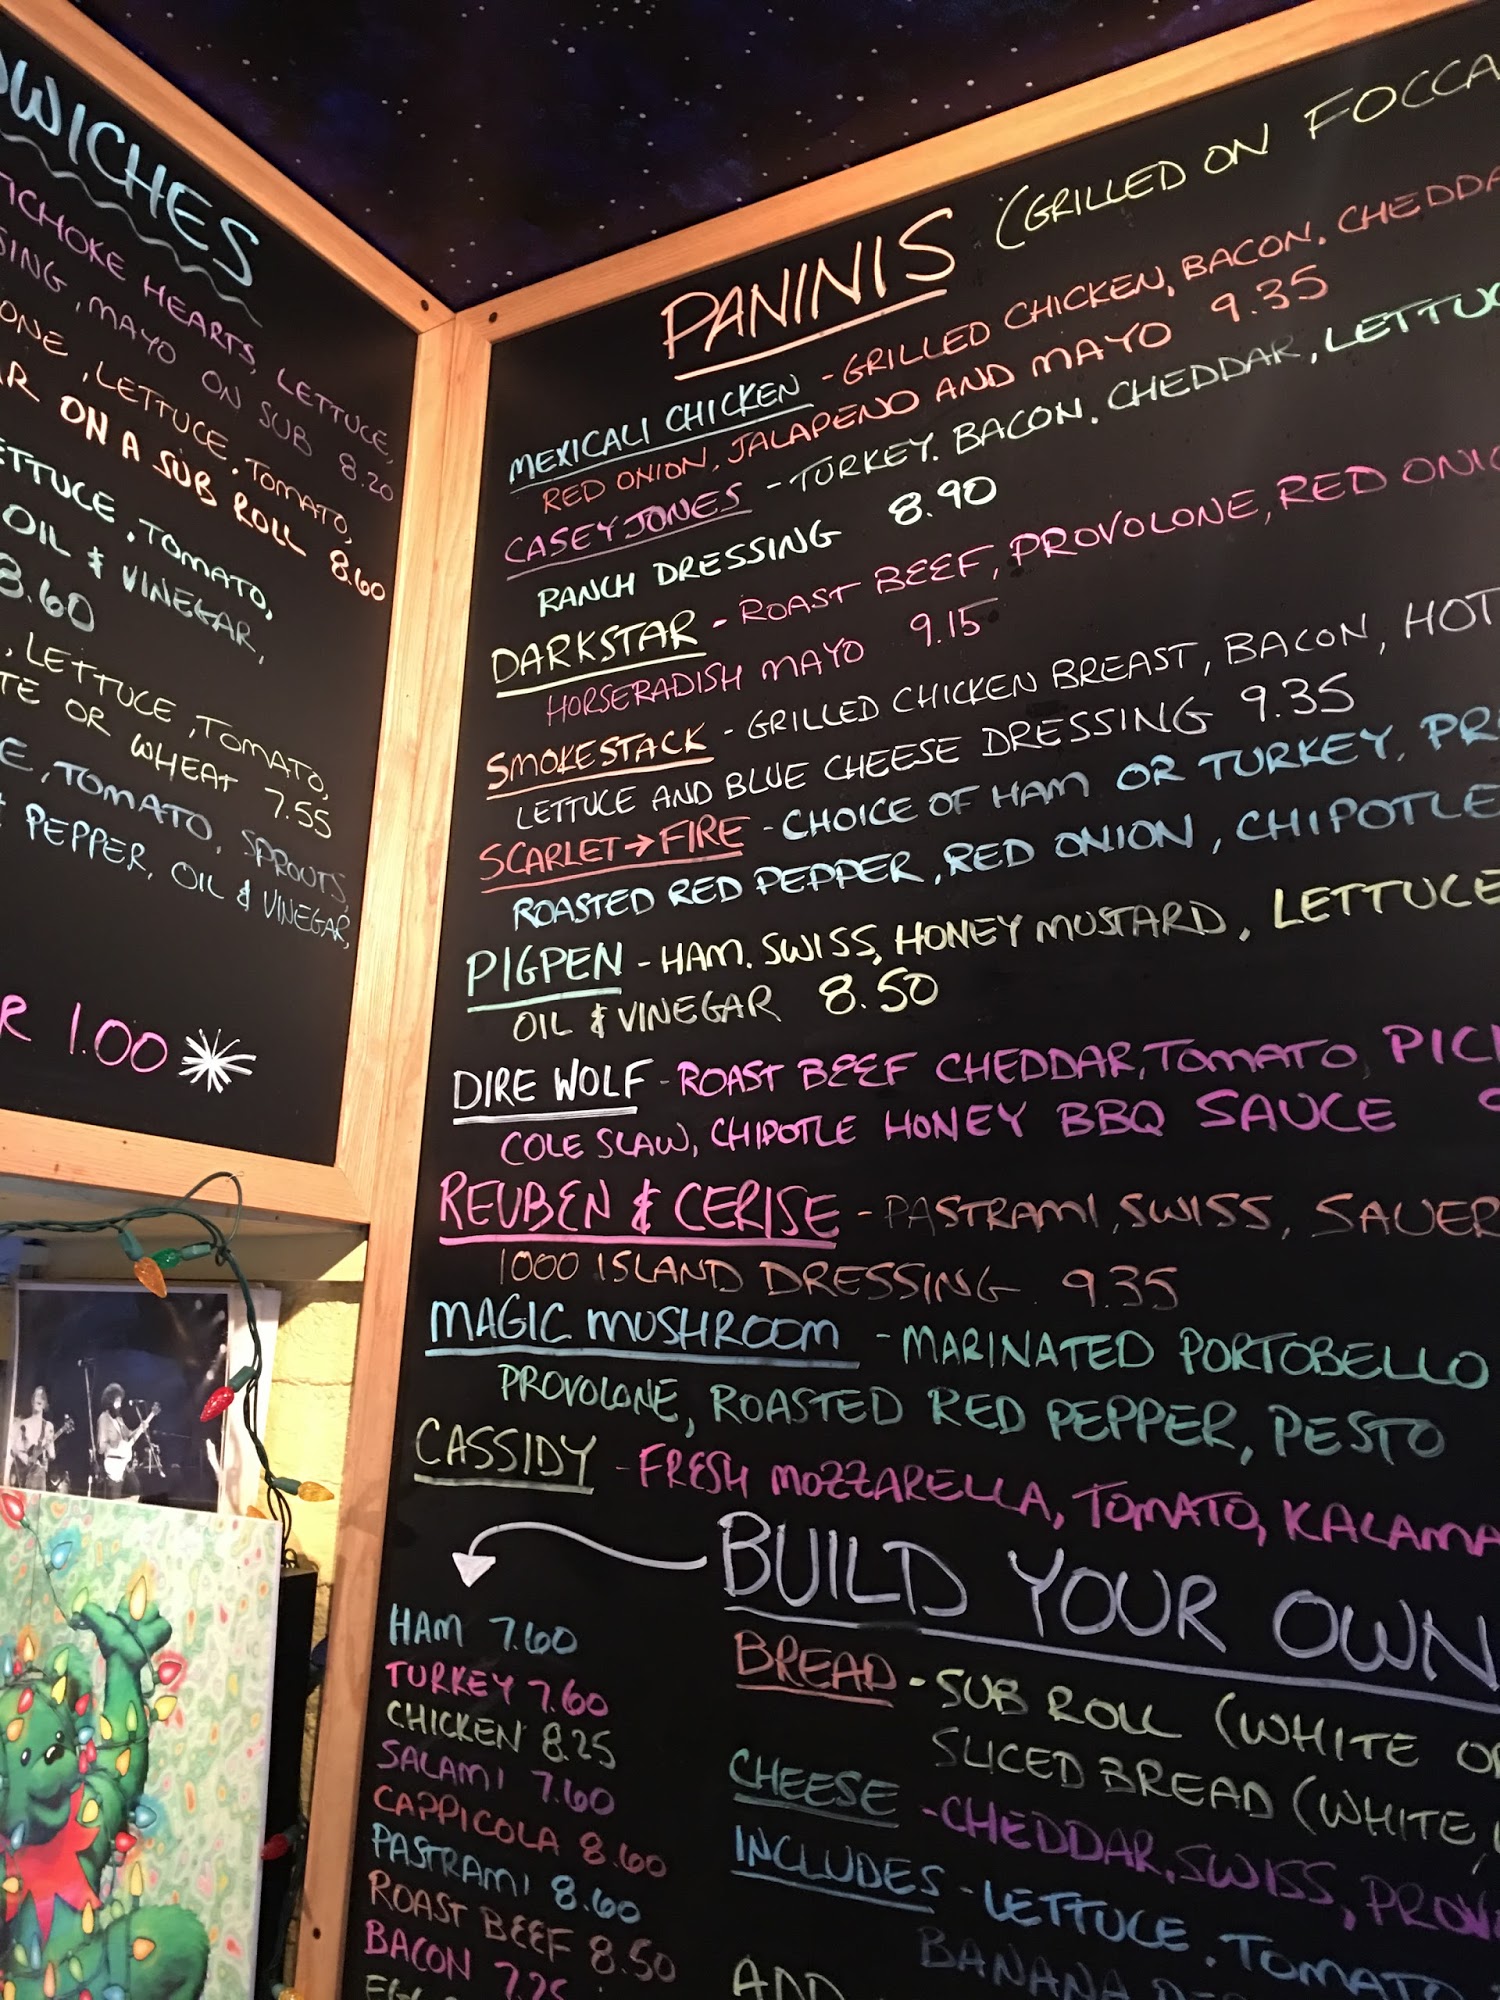 LETTUCE,
MAYO ON SUB 8.20
, LETTUCE, TOMATO,
ON A SUB ROLL 8.60
, TOMATO,
OIL & VINEGAR,
8.60
, LETTUCE, TOMATO,
OR WHEAT 7.55
, TOMATO, SPROUTS,
PEPPER, OIL & VINEGAR,
1.00
PANINIS (GRILLED ON
MEXICALI CHICKEN - GRILLED CHICKEN, BACON, CHEDDA
RED ONION, JALAPENO AND MAYO 9.35
CASEY JONES - TURKEY, BACON, CHEDDAR, LETTUC
RANCH DRESSING 8.90
DARKSTAR - ROAST BEEF, PROVOLONE, RED ONIO
HORSERADISH MAYO 9.15
SMOKESTACK - GRILLED CHICKEN BREAST, BACON, HOT
LETTUCE AND BLUE CHEESE DRESSING 9.35
SCARLET → FIRE - CHOICE OF HAM OR TURKEY, PR
ROASTED RED PEPPER, RED ONION, CHIPOTLE
PIGPEN - HAM, SWISS, HONEY MUSTARD, LETTUCE
OIL & VINEGAR 8.50
DIRE WOLF - ROAST BEEF CHEDDAR, TOMATO, PIC
COLE SLAW, CHIPOTLE HONEY BBQ SAUCE
REUBEN & CERISE - PASTRAMI, SWISS, SAUER
1000 ISLAND DRESSING 9.35
MAGIC MUSHROOM - MARINATED PORTOBELLO
PROVOLONE, ROASTED RED PEPPER, PESTO
CASSIDY - FRESH MOZZARELLA, TOMATO, KALAMA
BUILD YOUR OWN
HAM 7.60
TURKEY 7.60
CHICKEN 8.25
SALAMI 7.60
CAPPICOLA 8.60
PASTRAMI 8.60
ROAST BEEF 8.50
BACON
BREAD - SUB ROLL (WHITE OR
SLICED BREAD (WHITE,
CHEESE - CHEDDAR, SWISS, PROV
INCLUDES - LETTUCE, TOMATO
BANANA
ADD